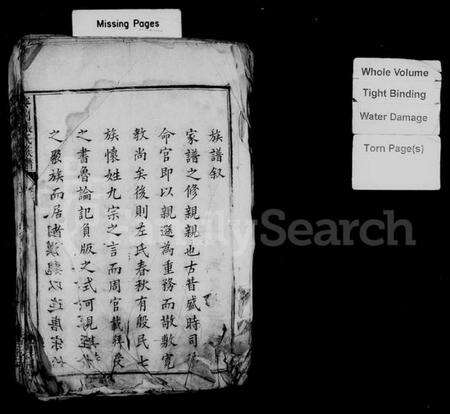 Missing Pages
Whole Volume
Tight Binding
Water Damage
Torn Page(s)
族譜叙
家譜之修親親也古昔盛時司徒
命官即以親遜為重務而散敷寬
教尚矣後則左氏春秋有殷民七
族懷姓九宗之言而周官載拜受
之書魯論記負版之式可見
之嚴族而居
FamilySearch